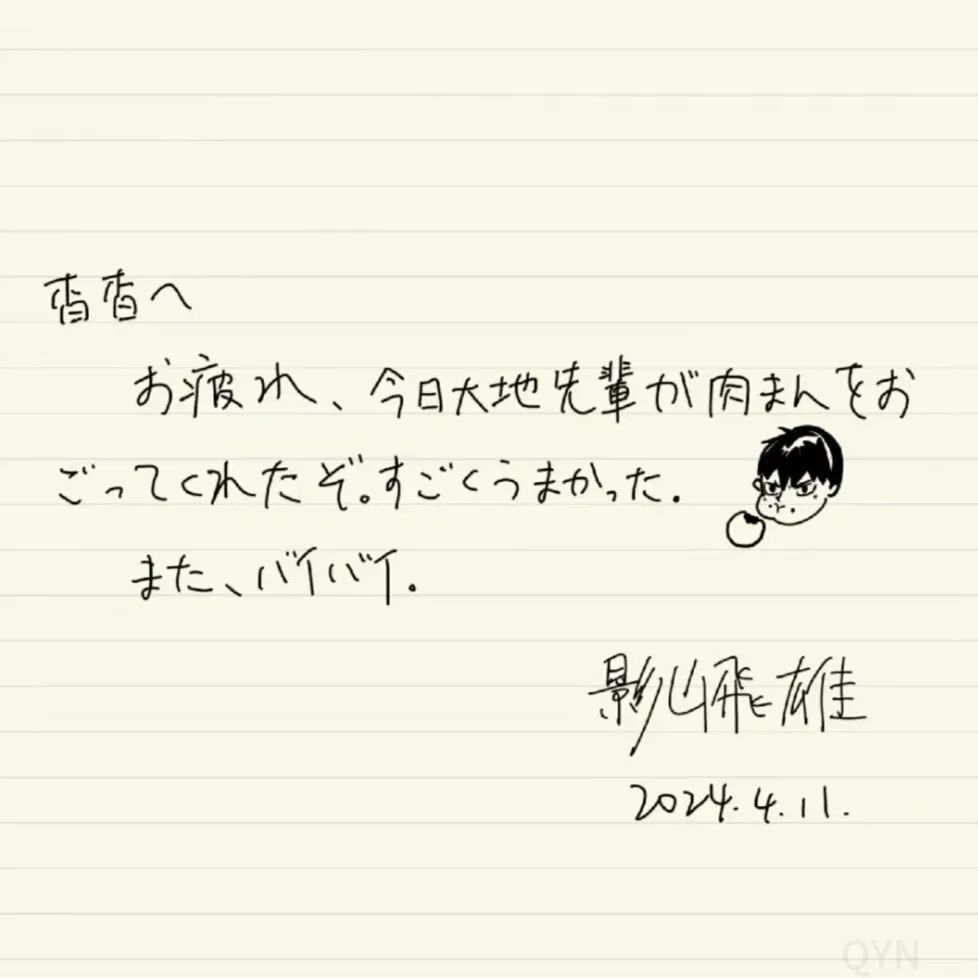 杳杳へ
お疲れ、今日大地先輩が肉まんをお
ごってくれたぞ。すごくうまかった.
また、バイバイ.
影山飛雄
2024.4.11.
QYN